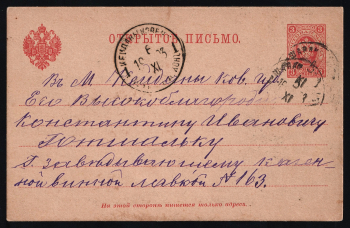 ОТКРЫТОЕ ПИСЬМО.
Въ М. Кейданы Ков. губ.
Его Высокоблагородію
Константину Ивановичу
Г. завѣдывающему казен-
ной винной лавкой № 163.
На этой сторонѣ пишется только адресъ.